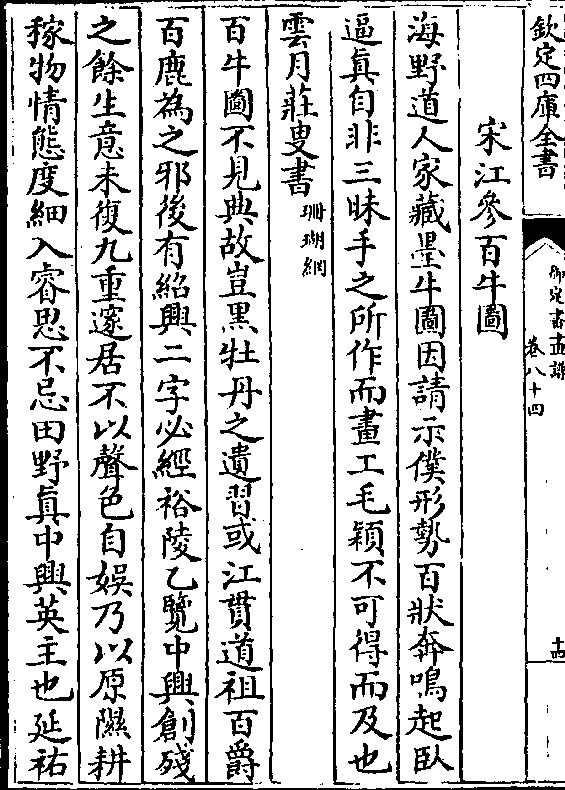 欽定四庫全書
御定書畫譜
卷八十四
十四
宋江參百牛圖
海野道人家藏墨牛圖因請示僕形勢百狀奔鳴起臥
逼真自非三昧手之所作而畫工毛穎不可得而及也
雲月莊叟書珊瑚網
百牛圖不見典故豈黑牡丹之遺習或江貫道祖百爵
百鹿為之邪後有紹興二字必經裕陵乙覽中興創殘
之餘生意未復九重邃居不以聲色自娛乃以原隰耕
稼物情態度細入睿思不忘田野真中興英主也延祐